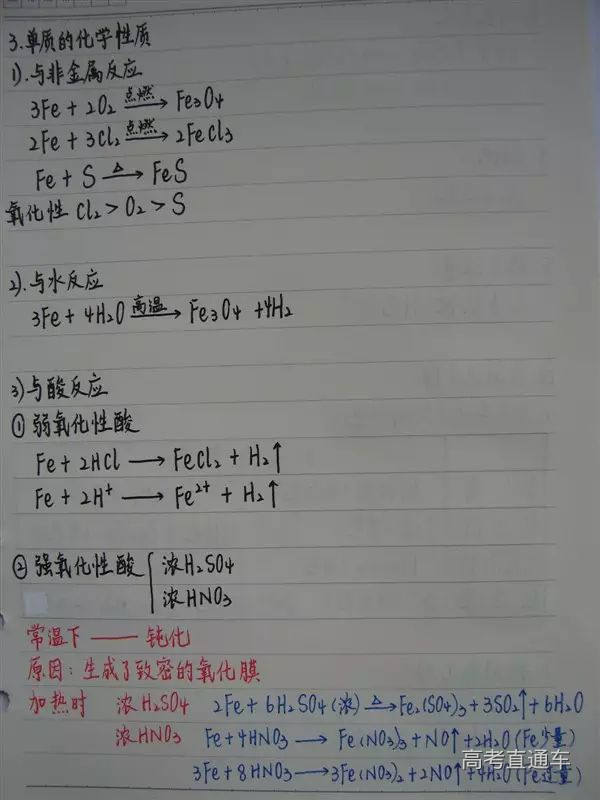 3.单质的化学性质
1).与非金属反应
3Fe + 2O₂ 点燃→ Fe₃O₄
2Fe + 3Cl₂ 点燃→ 2FeCl₃
Fe + S △→ FeS
氧化性 Cl₂ > O₂ > S
2).与水反应
3Fe + 4H₂O 高温→ Fe₃O₄ + 4H₂
3)与酸反应
① 弱氧化性酸
Fe + 2HCl → FeCl₂ + H₂↑
Fe + 2H⁺ → Fe²⁺ + H₂↑
② 强氧化性酸 { 浓H₂SO₄
浓HNO₃
常温下 —— 钝化
原因：生成了致密的氧化膜
加热时 浓H₂SO₄ 2Fe + 6H₂SO₄(浓) △→ Fe₂(SO₄)₃ + 3SO₂↑ + 6H₂O
浓HNO₃ Fe + 4HNO₃ → Fe(NO₃)₃ + NO↑ + 2H₂O (Fe少量)
3Fe + 8HNO₃ → 3Fe(NO₃)₂ + 2NO↑ + 4H₂O (Fe过量)
高考直通车